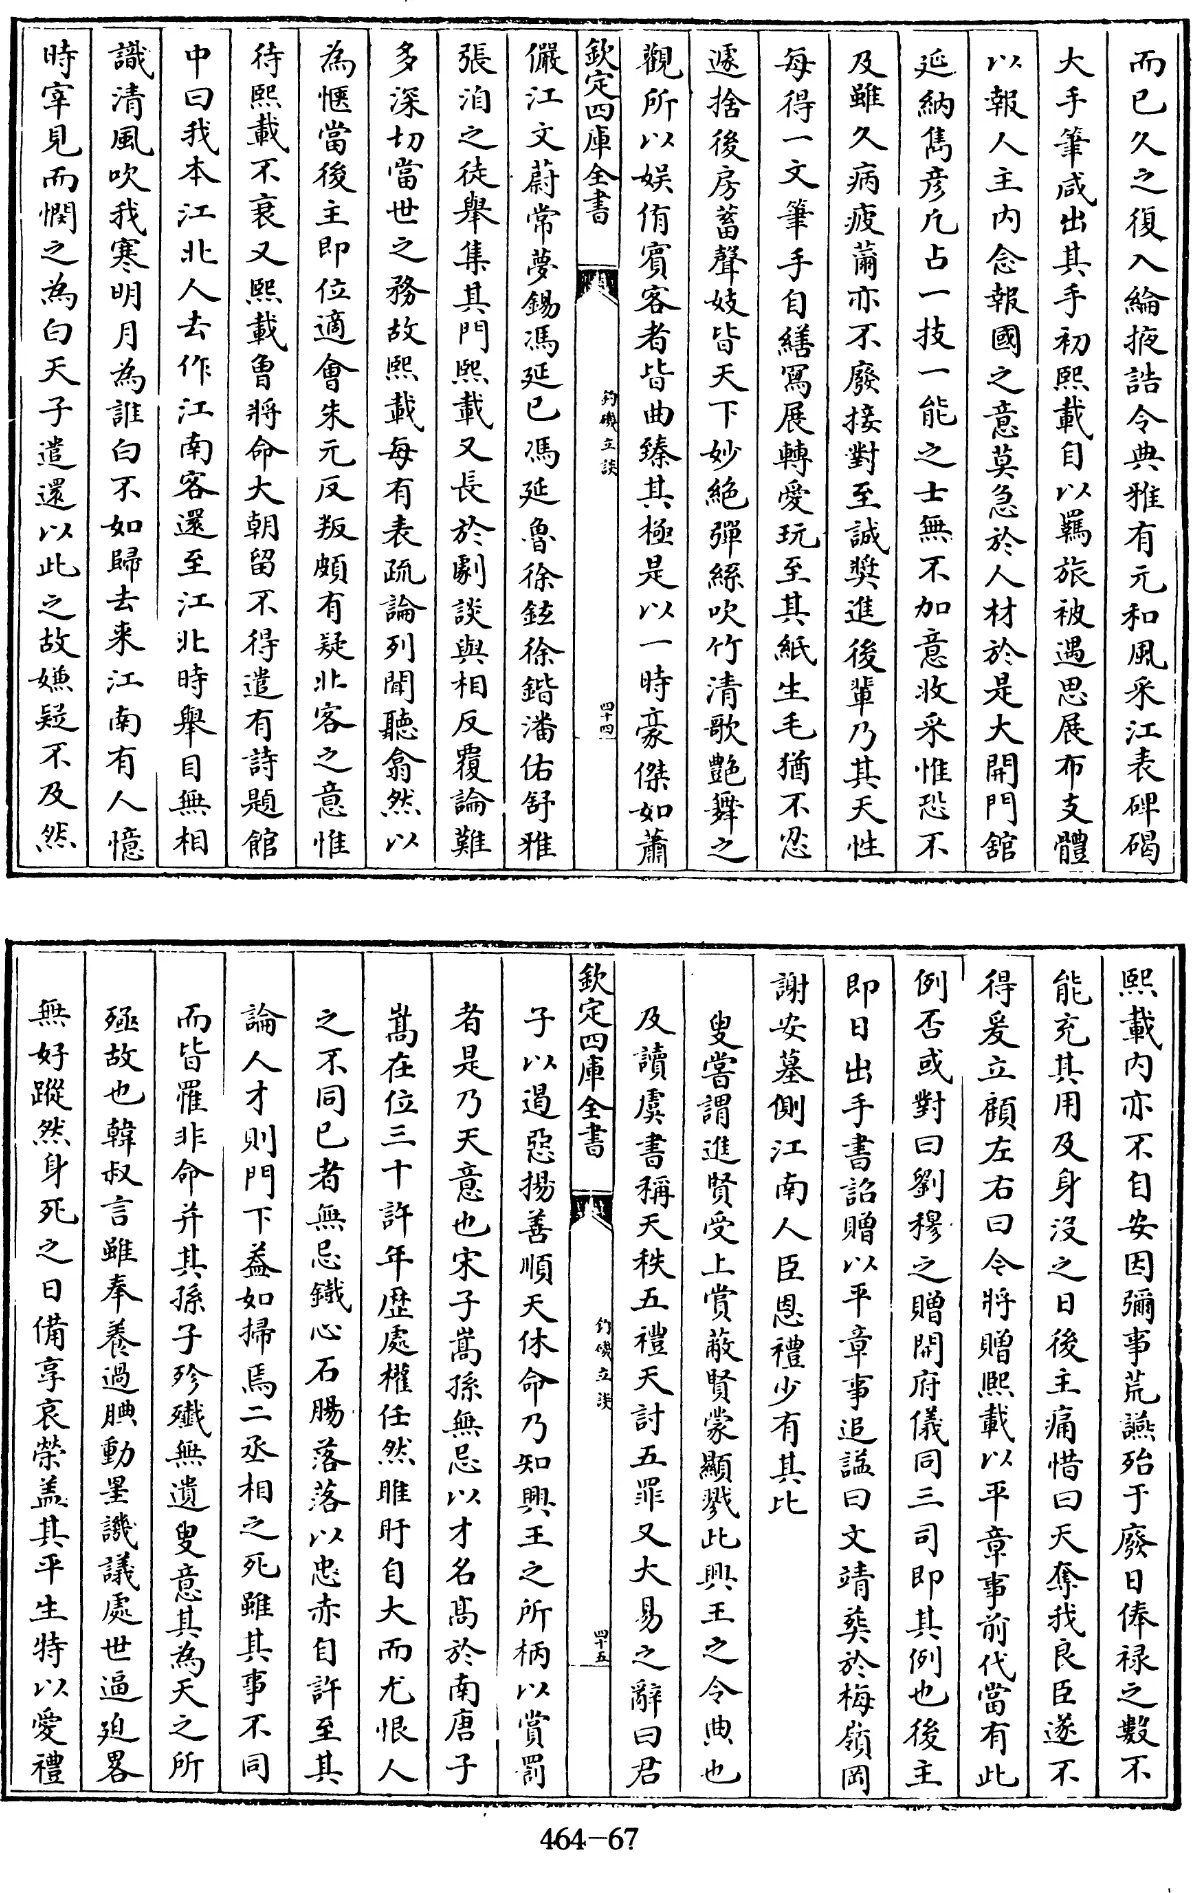 而已久之復入綸掖誥令典雅有元和風采江表碑碣
大手筆咸出其手初熙載自以羈旅被遇思展布支體
以報人主内念報國之意莫急於人材於是大開門舘
延納雋彦凡占一技一能之士無不加意收采惟恐不
及雖久病疲薾亦不廢接對至誠奬進後輩乃其天性
每得一文筆手自繕寫展轉愛玩至其紙生毛猶不忍
遽捨後房蓄聲妓皆天下妙絶彈絲吹竹清歌艶舞之
觀所以娱侑賓客者皆曲臻其極是以一時豪傑如蕭
欽定四庫全書
釣磯立談
四十四
儼江文蔚常夢錫馮延巳馮延魯徐鉉徐鍇潘佑舒雅
張洎之徒舉集其門熙載又長於劇談與相反覆論難
多深切當世之務故熙載每有表疏論列聞聽翕然以
為愜當後主即位適會朱元反叛頗有疑北客之意惟
待熙載不衰又熙載曽將命大朝留不得遣有詩題館
中曰我本江北人去作江南客還至江北時舉目無相
識清風吹我寒明月為誰白不如歸去來江南有人憶
時宰見而憫之為白天子遣還以此之故嫌疑不及然
熙載内亦不自安因彌事荒讌殆于廢日俸禄之數不
能充其用及身没之日後主痛惜曰天奪我良臣遂不
得爰立顧左右曰今將贈熙載以平章事前代當有此
例否或對曰劉穆之贈開府儀同三司即其例也後主
即日出手書詔贈以平章事追諡曰文靖葬於梅嶺岡
謝安墓側江南人臣恩禮少有其比
叟嘗謂進賢受上賞蔽賢蒙顯戮此興王之令典也
及讀虞書稱天秩五禮天討五罪又大易之辭曰君
欽定四庫全書
釣磯立談
四十五
子以遏惡揚善順天休命乃知興王之所柄以賞罰
者是乃天意也宋子嵩孫無忌以才名髙於南唐子
嵩在位三十許年歴處權任然睢盱自大而尤恨人
之不同已者無忌鐵心石腸落落以忠赤自許至其
論人才則門下葢如掃焉二丞相之死雖其事不同
而皆罹非命并其孫子殄殱無遺叟意其為天之所
殛故也韓叔言雖奉養過腆動罣譏議處世逼廹畧
無好蹤然身死之日備享哀榮盖其平生特以愛禮
464-67